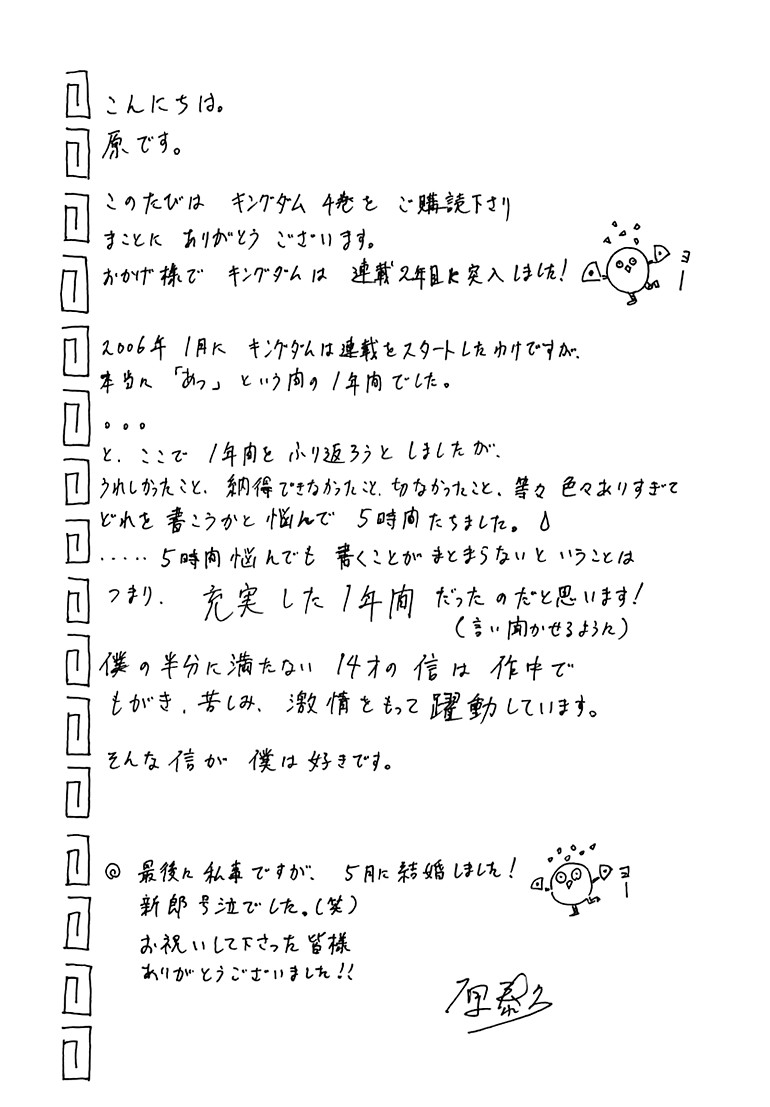 こんにちは。
原です。
このたびは キングダム 4巻を ご購読下さり
まことに ありがとう ございます。
おかげ様で キングダムは 連載2年目に突入しました!
ヨー
2006年 1月に キングダムは連載をスタートしたわけですが、
本当に 「あっ」という間の1年間でした。
。。。
と、ここで 1年間を ふり返ろうと しましたが、
うれしかったこと、納得できなかったこと、切なかったこと、等々 色々ありすぎて
どれを 書こうかと 悩んで 5時間たちました。
・・・・・5時間悩んでも 書くことが まとまらないと いうことは
つまり、 充実した1年間 だったのだと思います!
(言い聞かせるように)
僕の半分に満たない 14才の 信は 作中で
もがき、苦しみ、激情をもって躍動しています。
そんな信が 僕は好きです。
◎ 最後に私事ですが、 5月に結婚しました!
ヨー
新郎号泣でした。(笑)
お祝いして下さった皆様
ありがとうございました!!
原泰久